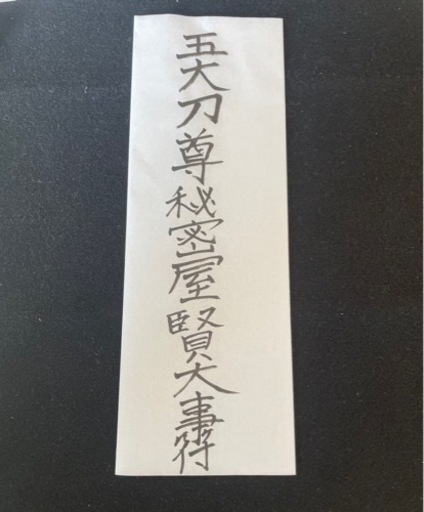 五大刀尊秘密屋賢大事符